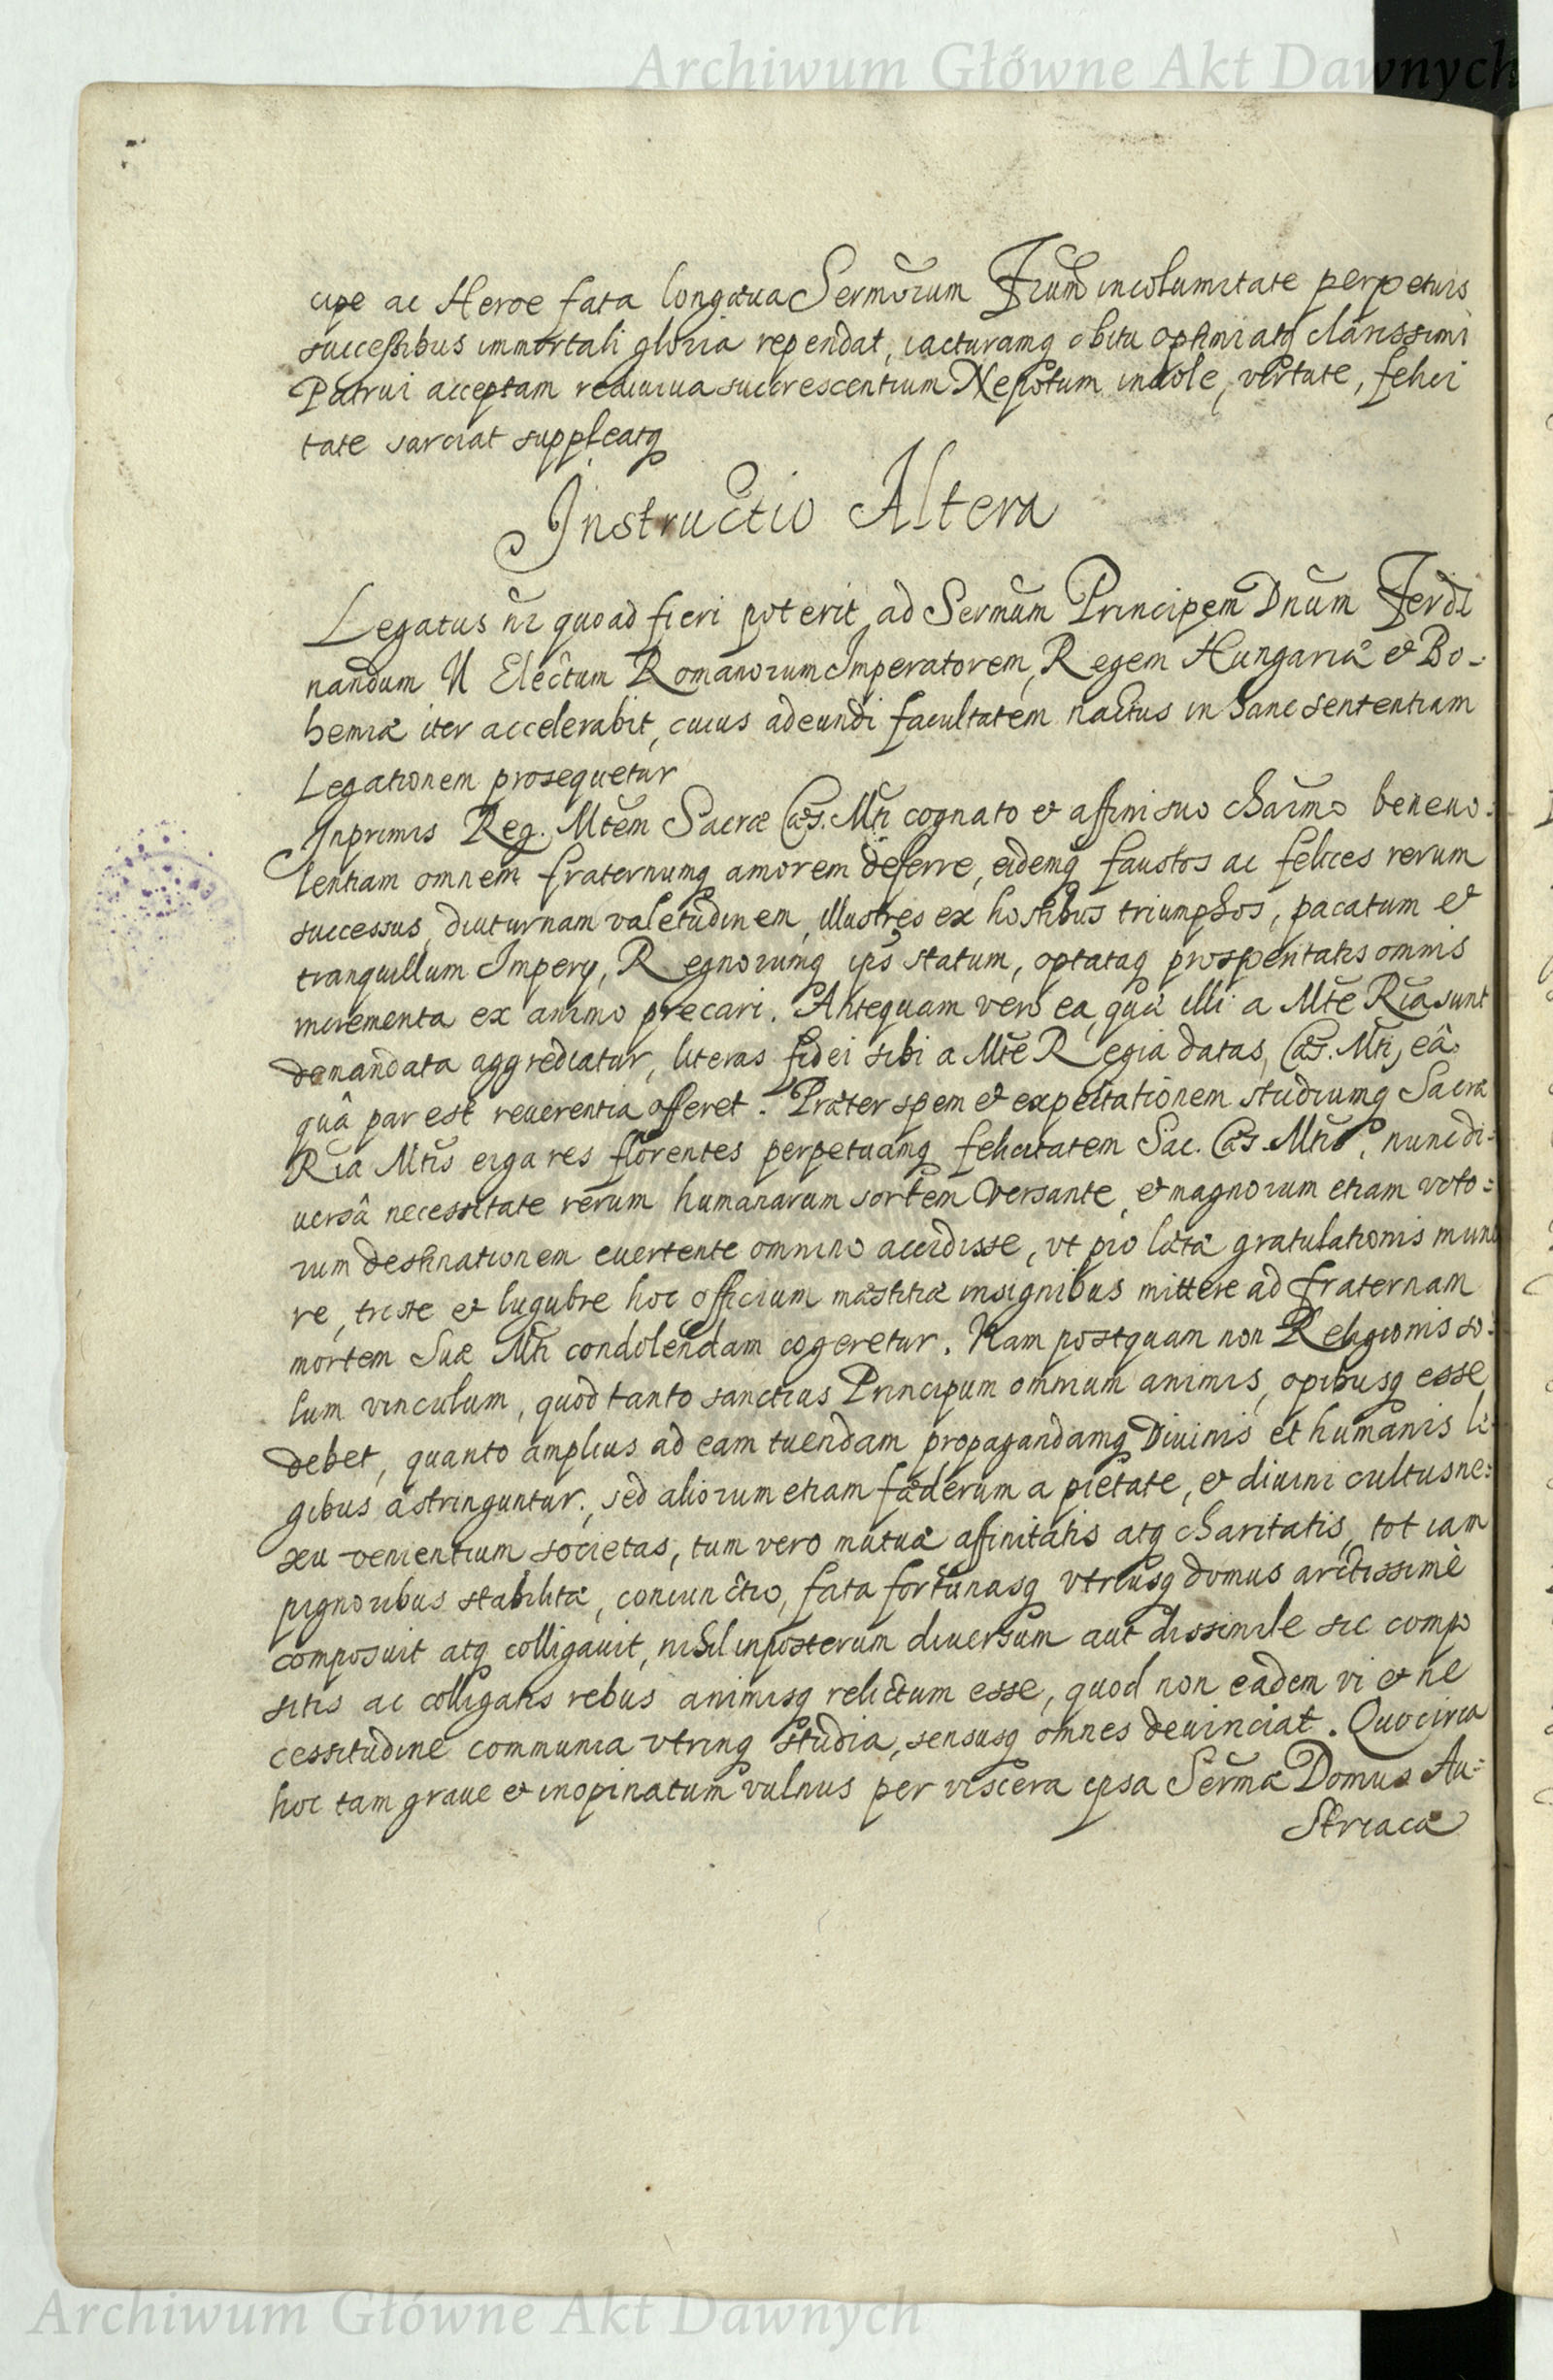 Archiwum Główne Akt Dawnych
cipe ac Heroe fata longæua Sermorum Frum incolumitate perpetuis
successibus immortali gloria rependat, iacturamq obitu optimi atq clarissimi
Patrui acceptam rediuiua succrescentium Nepotum indole, virtute, felici
tate sarciat suppleatq
Instructio Altera
Legatus nr quoad fieri poterit ad Sermum Principem Dnum Ferdi
nandum II Electum Romanorum Imperatorem, Regem Hungariæ et Bo-
hemiæ iter accelerabit, cuius adeundi facultatem nactus in hanc sententiam
Legationem prosequetur
Inprimis Reg. Mtem Sacræ Cæs. Mti cognato et affini suo charmo beneuo:
lentiam omnem fraternumq amorem deferre, eidemq faustos ac felices rerum
successus, diuturnam valetudinem, illustres ex hostibus triumphos, pacatum et
tranquillum Impery, Regnorumq ips statum, optataq prosperitatis omnis
incrementa ex animo precari. Antequam vero ea, quæ illi a Mte Ria sunt
demandata aggrediatur, literas fidei sibi a Mte Regia datas, Cæs. Mti, eâ
quâ par est reuerentia offeret. Præter spem et expectationem studiumq Sacræ
Riæ Mtis erga res florentes perpetuamq felicitatem Sac. Cæs. Mtis, nunc di:
uersâ necessitate rerum humanarum sortem versante, et magnorum etiam voto:
rum destinationem euertente omnino accidisse, vt pro lætæ gratulationis mune
re, triste et lugubre hoc officium mæstitiæ insignibus mittere ad fraternam
mortem Suæ Mti condolendam cogeretur. Nam postquam non Religionis so:
lum vinculum, quod tanto sanctius Principum omnium animis, opibusq esse
debet, quanto amplius ad eam tuendam propagandamq Diuinis et humanis le
gibus astringuntur, sed aliorum etiam fæderum a pietate, et diuini cultus ne:
xu venientium societas, tum vero mutuæ affinitatis atq charitatis, tot iam
pignoribus stabilitæ, coniunctio, fata fortunasq vtriusq domus arctissimè
composuit atq colligauit, nihil inposterum diuersum aut dissimile sic compo
sitis ac colligatis rebus animisq relictum esse, quod non eadem vi et ne
cessitudine communia vtrinq studia, sensusq omnes deuinciat. Quocirca
hoc tam graue et inopinatum vulnus per viscera ipsa Sermæ Domus Au:
striacæ
Archiwum Główne Akt Dawnych